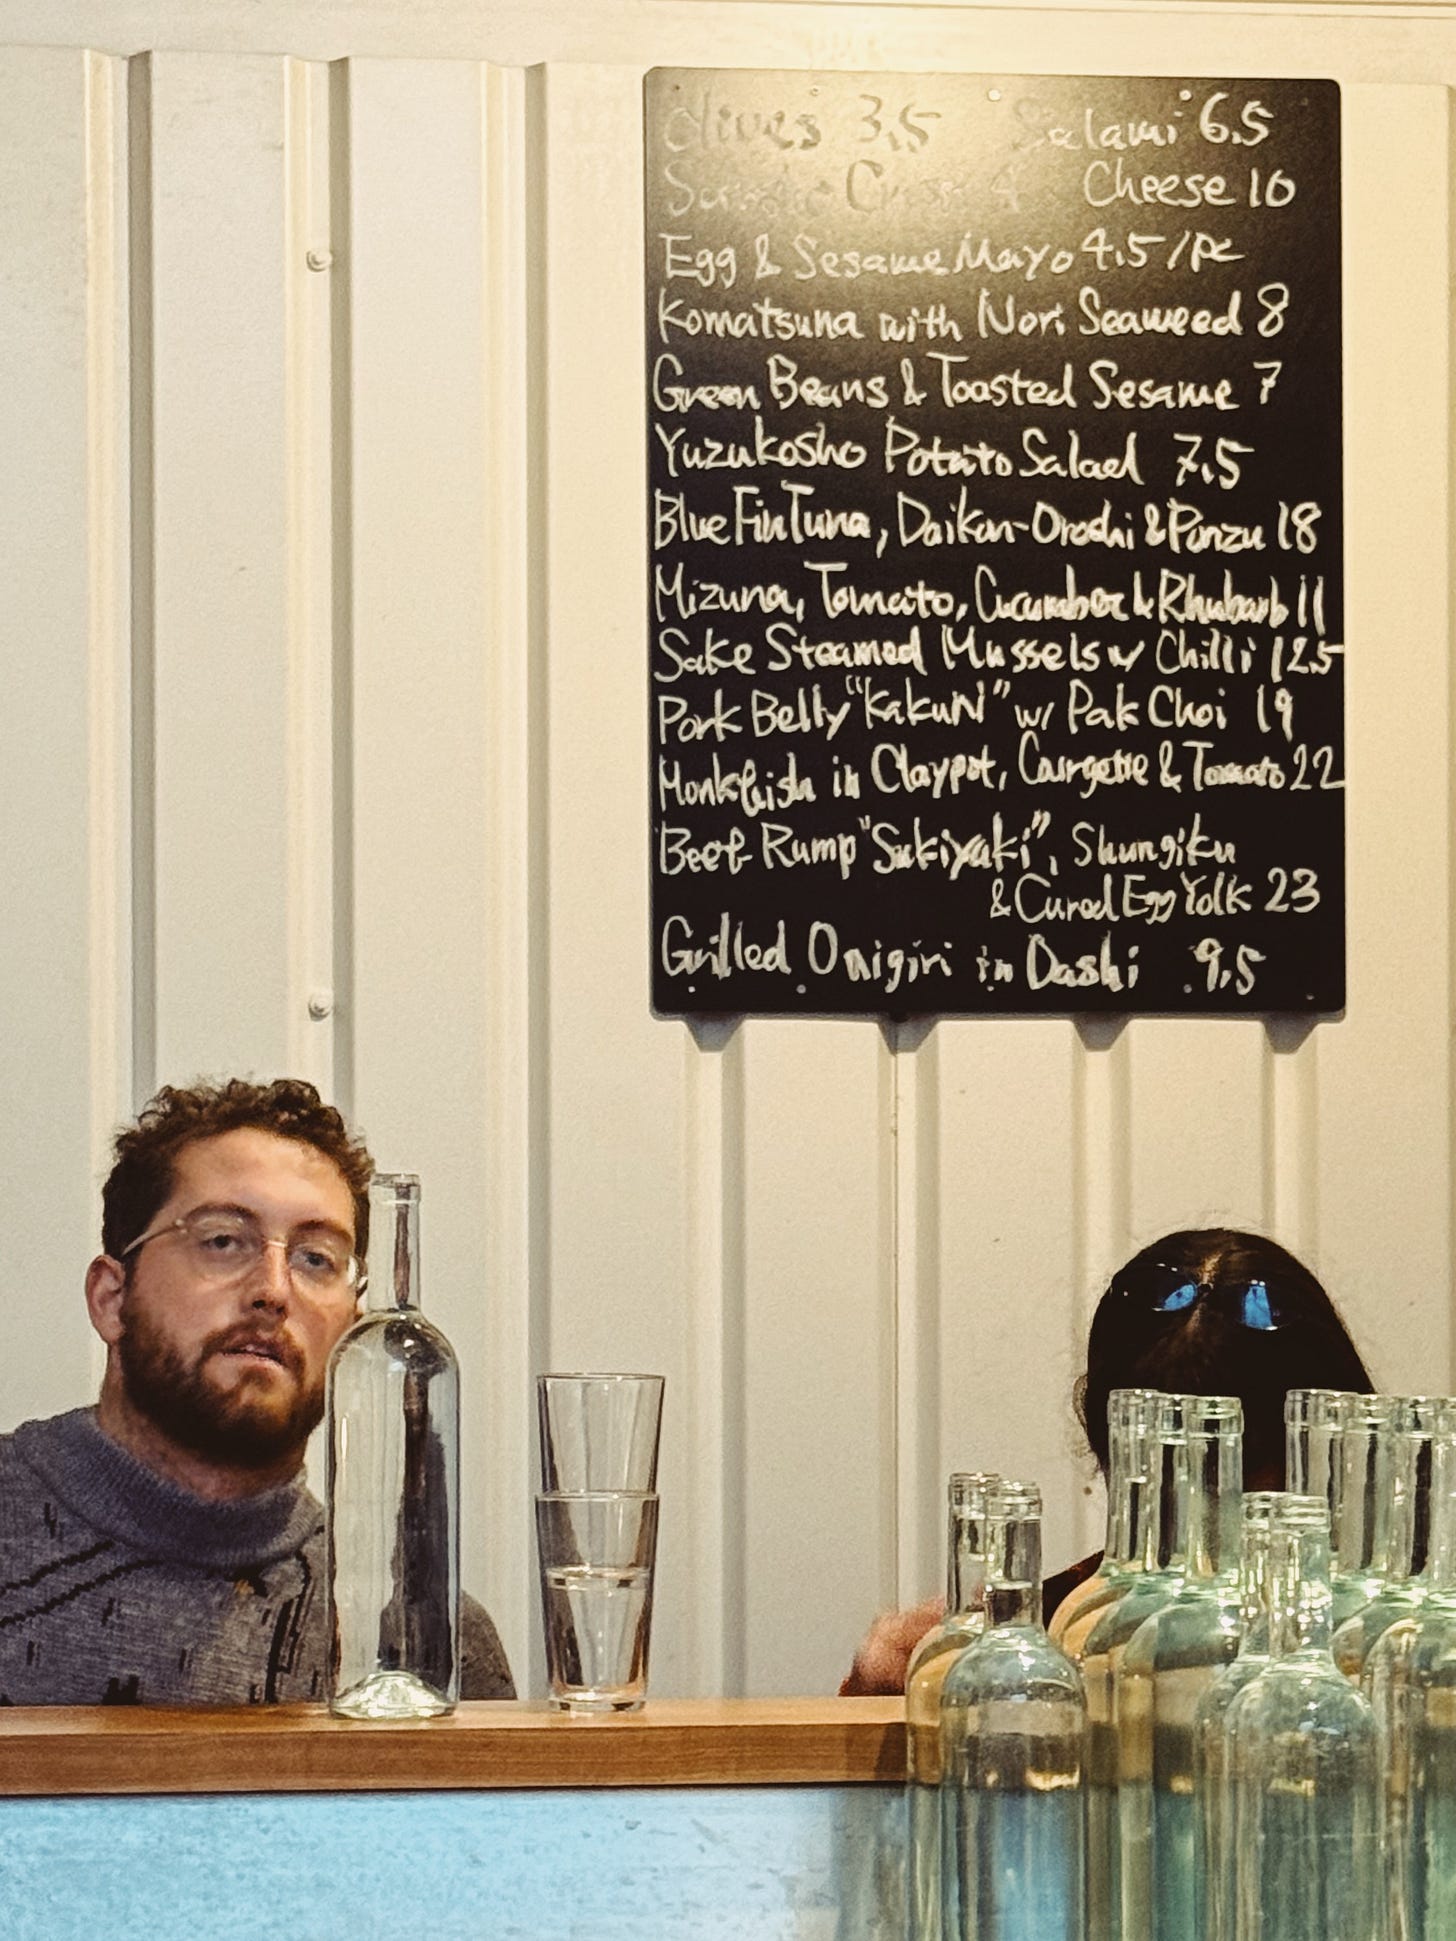 Olives 3.5 Salami 6.5
Cheese 10
Egg & Sesame Mayo 4.5/pc
Komatsuna with Nori Seaweed 8
Green Beans & Toasted Sesame 7
Yuzukosho Potato Salad 7.5
Blue Fin Tuna, Daikon-Oroshi & Ponzu 18
Mizuna, Tomato, Cucumber & Rhubarb 11
Sake Steamed Mussels w/ Chilli 12.5
Pork Belly "KakuNi" w/ Pak Choi 19
Monkfish in Claypot, Courgette & Tomato 22
Beef Rump "Sukiyaki", Shungiku
& Cured Egg Yolk 23
Grilled Onigiri in Dashi 9.5